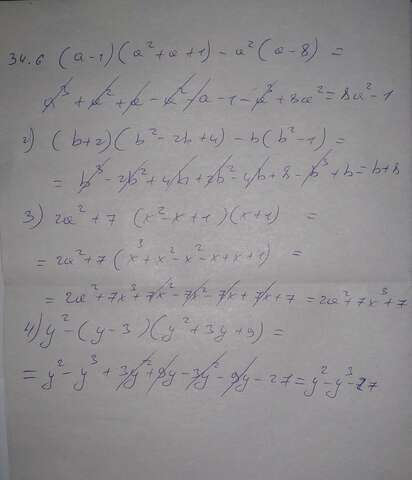 34.6 (a-1)(a²+a+1)-a²(a-8)=
a³+a²+a-a²-a-1-a³+8a²=8a²-1
2) (b+2)(b²-2b+4)-b(b²-1)=
=b³-2b²+4b+2b²-4b+8-b³+b=b+8
3) 2a²+7 (x²-x+1)(x+1) =
=2a²+7(x³+x²-x²-x+x+1) =
=2a²+7x³+7x²-7x²-7x+7x+7=2a²+7x³+7
4) y²-(y-3)(y²+3y+9)=
=y²-y³+3y²+9y-3y²-9y-27=y²-y³-27